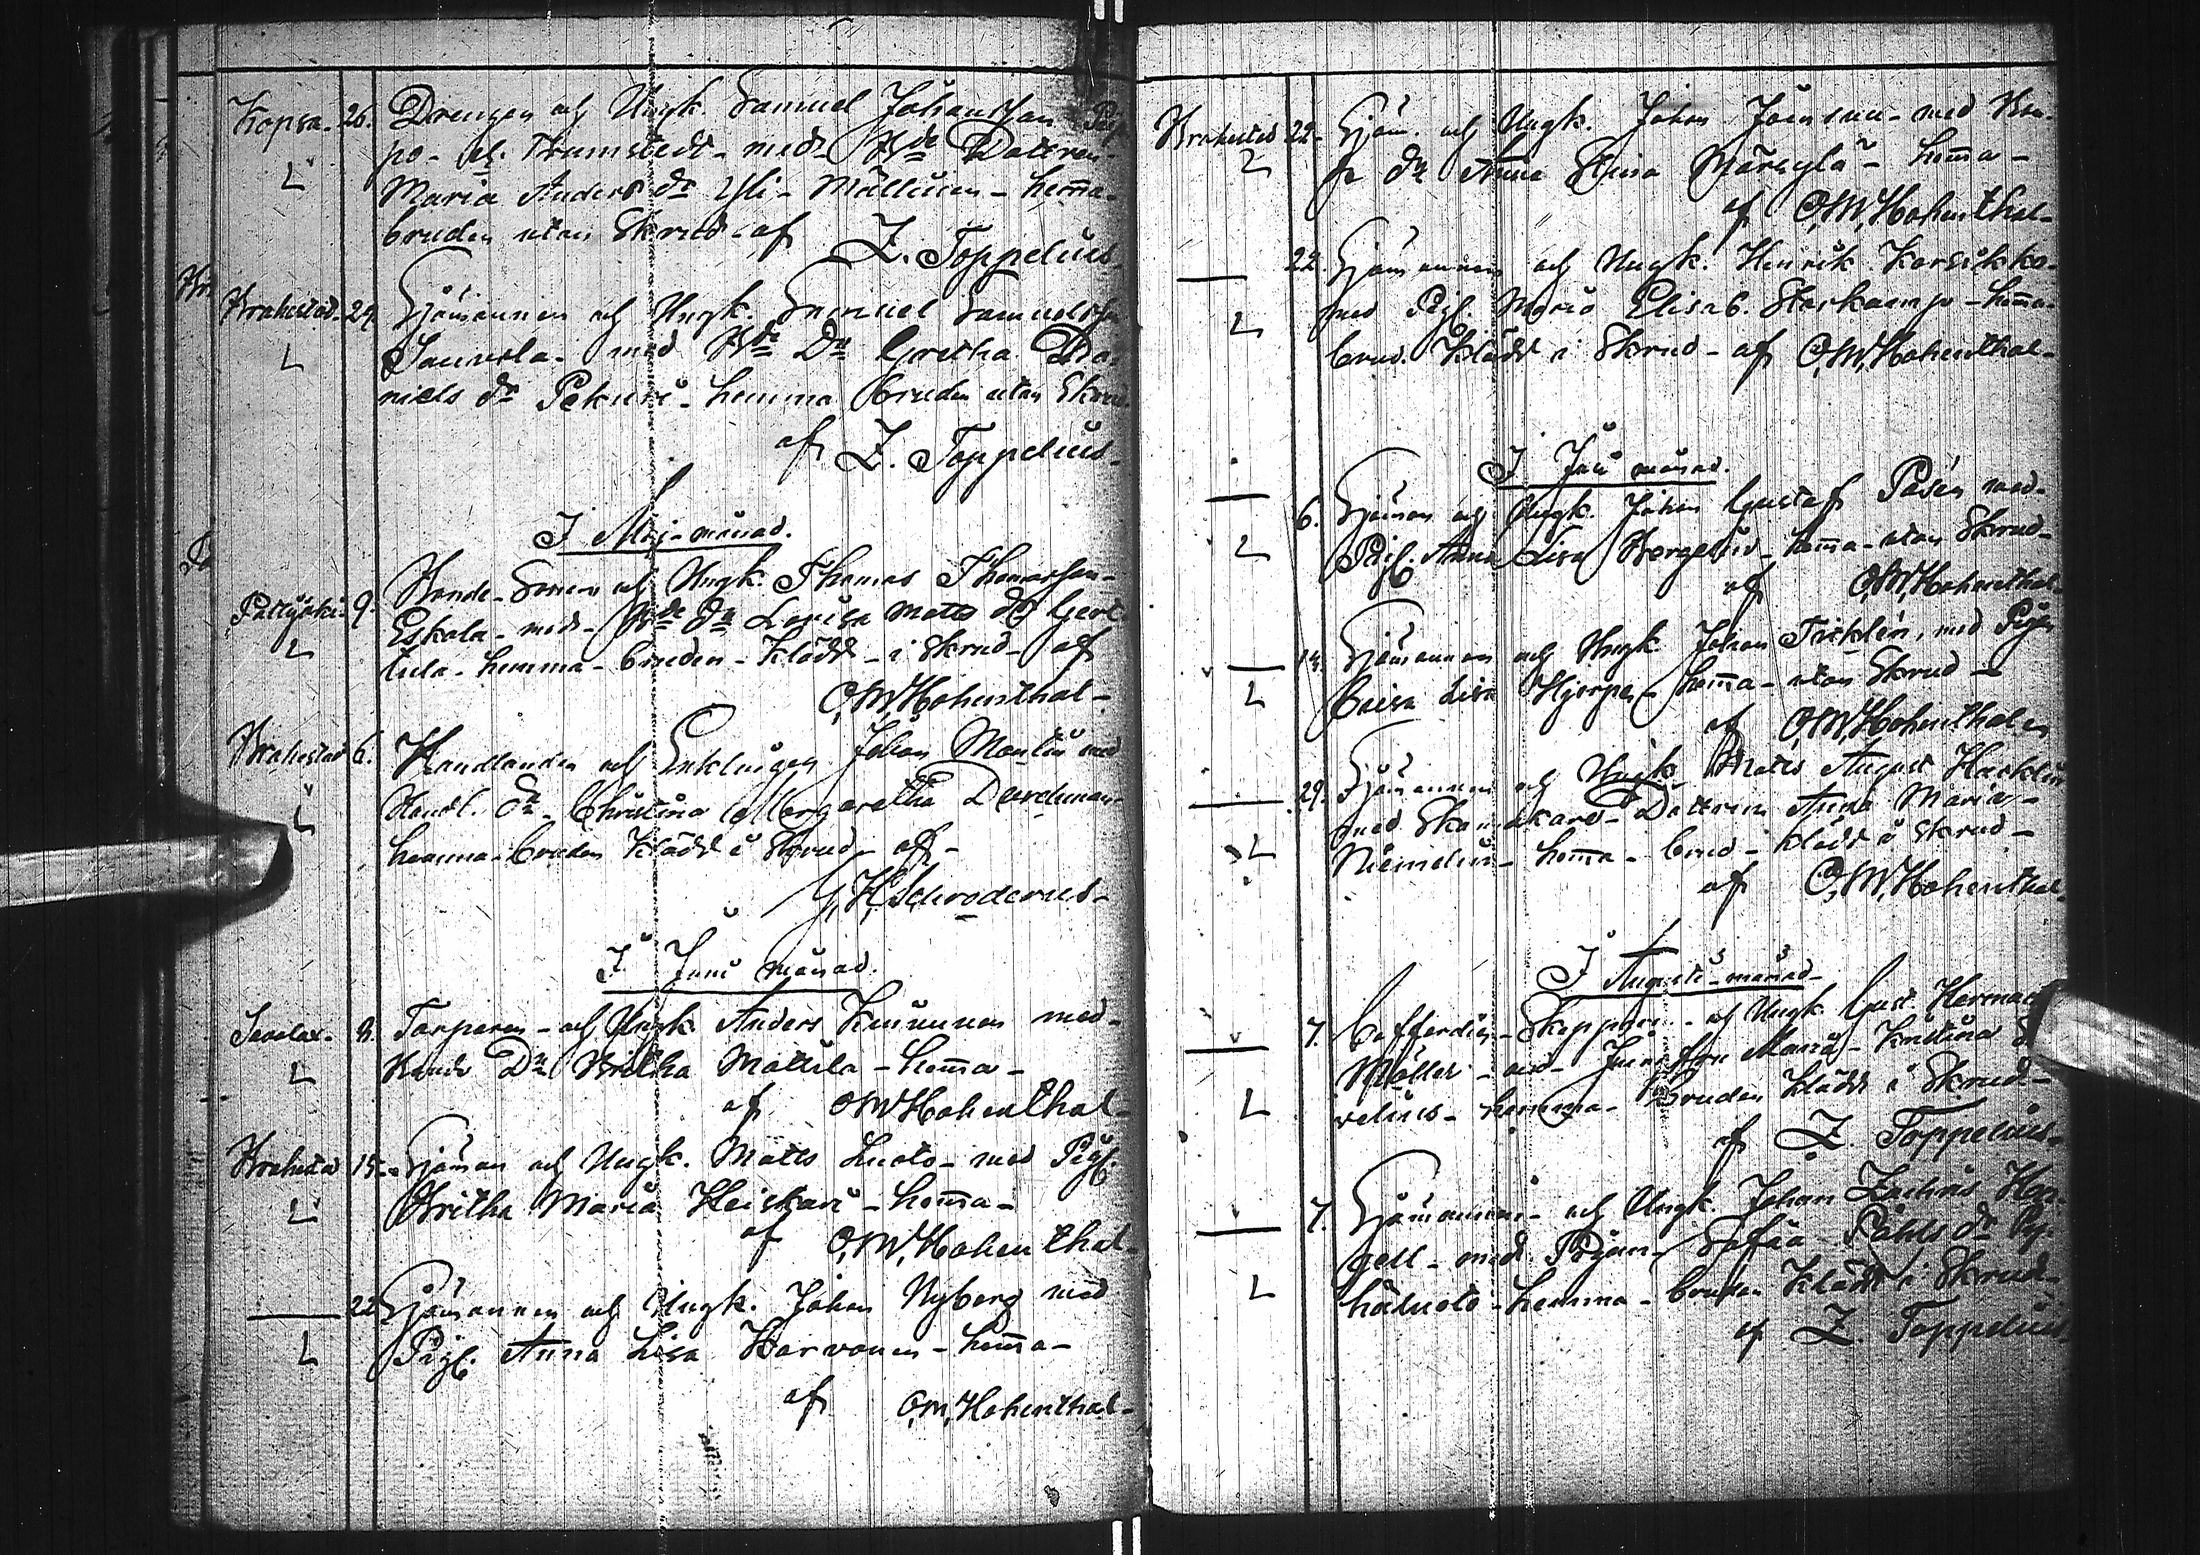 Kopsa. 26. Drengen och Ungk. Samuel Johansson
po- och Trumstedt- med Bde Dottren-
Maria Anders dr Yli-Mällinen- hema-
bruden utan Skrud- af Z. Toppelius.
Brahestad. 29. Sjömannen och Ungk. Samuel Samuelsson
Sauvola- med Bde Dn Gretha Da-
niels dr Pekuri- hemma bruden utan Skrud
af Z. Toppelius-
I Maj-månad.
Bonde-Sonen och Ungk. Thomas Thomasson-
Pattijoki- 9. Eskola- med- Bde Dn Lovisa Matts dr Gert-
tula- hemma- bruden- klädd- i Skrud- af
C,M,Hohenthal-
Brahestad 6. Handlanden och Enklingen Johan Montin med
Handl. dr Christina Margaretha Durchman-
hemma- bruden klädd i Skrud- af-
G,H,Schroderus-
I Juni månad.
8. Torparen- och Ungk. Anders Kinnunen med-
Bonde Dn Britha Mattila- hema-
af C M Hohenthal-
Brahestad 15. Sjöman och Ungk. Matts Luoto- med Pig.
Britha Maria Heiskari- hema-
af C,M,Hohenthal-
22. Sjömannen och Ungk. Johan Nyberg med
Pig. Anna Lisa Karvonen- hema-
af C,M,Hohenthal-
Brahestad 22. Sjöm. och Ungk. Johan med
dr Anna Stina Märsylä- hema-
af C,M,Hohenthal-
22. Sjömannen och Ungk. Henrik Karsikko-
med Pig. Maria Elisab. Storkamp- hema-
brud. klädd i Skrud- af C,M,Hohenthal-
I månad.
6. Sjöman och Ungk. Johan Gustaf Posén med-
Pig. Anna Lisa Bergelin- hema- utan Skrud-
af C,M,Hohenthal-
14. Sjömannen och Ungk. Johan Fricklén, med Pigan
Caisa Lisa Hjerpe- hema- utan Skrud-
af C,M,Hohenthal
29. Sjömannen och Ungk. Matts August Hacklin
med Skomakare- Dottren Anna Maria-
Niemelin- hema- brud- klädd i Skrud-
af C,M,Hohenthal.
I Augusti-månad-
7. Cofferdie-Skepparen- och Ungk. Gust. Herman
Möller- med- Jungfru Maria- Kristina
velius- hemma- bruden klädd i Skrud-
af Z. Toppelius-
7. Sjömannen- och Ungk. Johan Zachris Hon-
gell- med Pigan- Sofia Påhls dr Py-
häluoto- hemma- bruden klädd i Skrud-
af Z. Toppelius